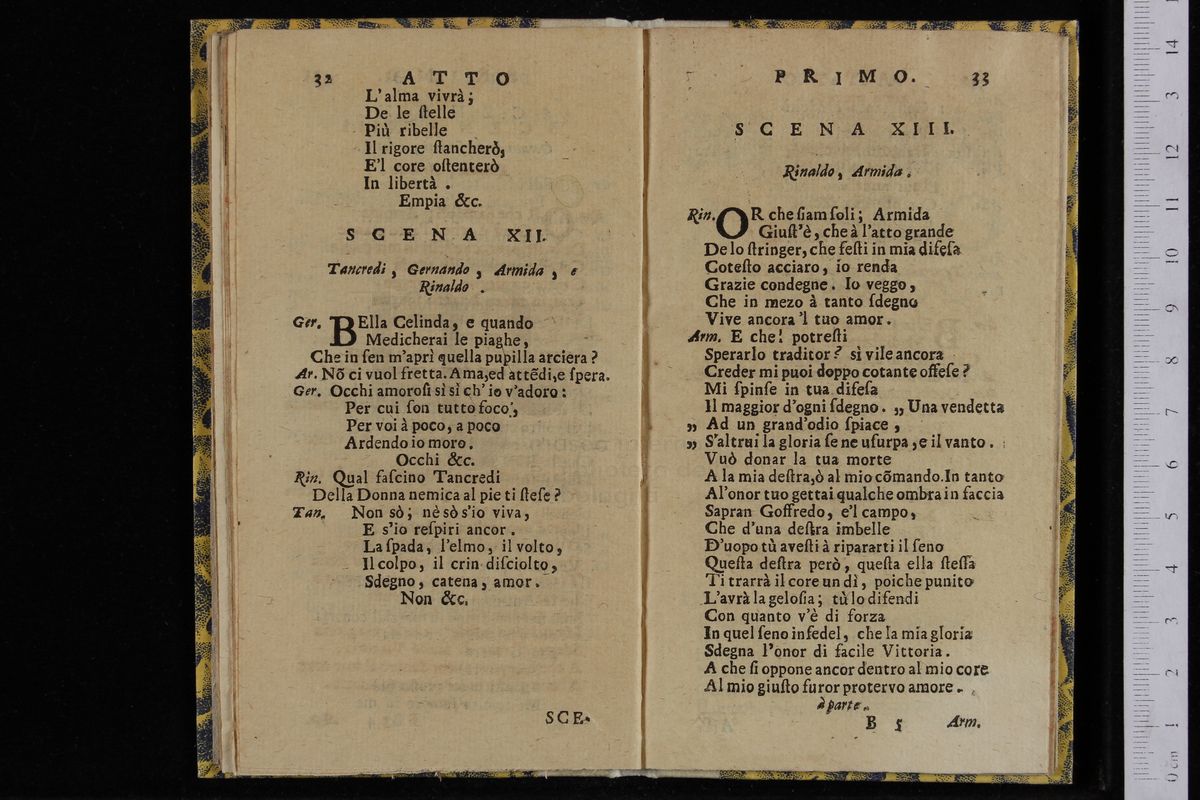 32 ATTO
L'alma vivrà;
De le ſtelle
Più ribelle
Il rigore ſtancherò,
E'l core oſtenterò
In libertà .
Empia &c.
SCENA XII.
Tancredi , Gernando , Armida , e
Rinaldo .
Ger. BElla Celinda, e quando
Medicherai le piaghe,
Che in ſen m'aprì quella pupilla arciera ?
Ar. Nõ ci vuol fretta. Ama,ed attẽdi,e ſpera.
Ger. Occhi amoroſi sì sì ch' io v'adoro :
Per cui ſon tutto foco ,
Per voi à poco, a poco
Ardendo io moro .
Occhi &c.
Rin. Qual faſcino Tancredi
Della Donna nemica al pie ti ſteſe ?
Tan. Non sò ; nè sò s'io viva,
E s'io reſpiri ancor .
La ſpada, l'elmo, il volto,
Il colpo, il crin diſciolto,
Sdegno, catena, amor.
Non &c.
SCE-
PRIMO. 33
SCENA XIII.
Rinaldo, Armida .
Rin. OR che ſiam ſoli ; Armida
Giuſt'è, che à l'atto grande
De lo ſtringer, che feſti in mia difeſa
Coteſto acciaro, io renda
Grazie condegne . Io veggo,
Che in mezo à tanto ſdegno
Vive ancora 'l tuo amor .
Arm. E che! potreſti
Sperarlo traditor ? sì vile ancora
Creder mi puoi doppo cotante offeſe ?
Mi ſpinſe in tua difeſa
Il maggior d'ogni ſdegno . „ Una vendetta
„ Ad un grand'odio ſpiace ,
„ S'altrui la gloria ſe ne uſurpa ,e il vanto .
Vuò donar la tua morte
A la mia deſtra,ò al mio cõmando.In tanto
Al'onor tuo gettai qualche ombra in faccia
Sapran Goffredo, e'l campo,
Che d'una deſtra imbelle
D'uopo tù aveſti à ripararti il ſeno
Queſta deſtra però, queſta ella ſteſſa
Ti trarrà il core un dì, poiche punito
L'avrà la geloſia ; tù lo difendi
Con quanto v'è di forza
In quel ſeno infedel, che la mia gloria
Sdegna l'onor di facile Vittoria.
A che ſi oppone ancor dentro al mio core
Al mio giuſto furor protervo amore .
à parte.
B 5 Arm.
0 cm 1 2 3 4 5 6 7 8 9 10 11 12 13 14